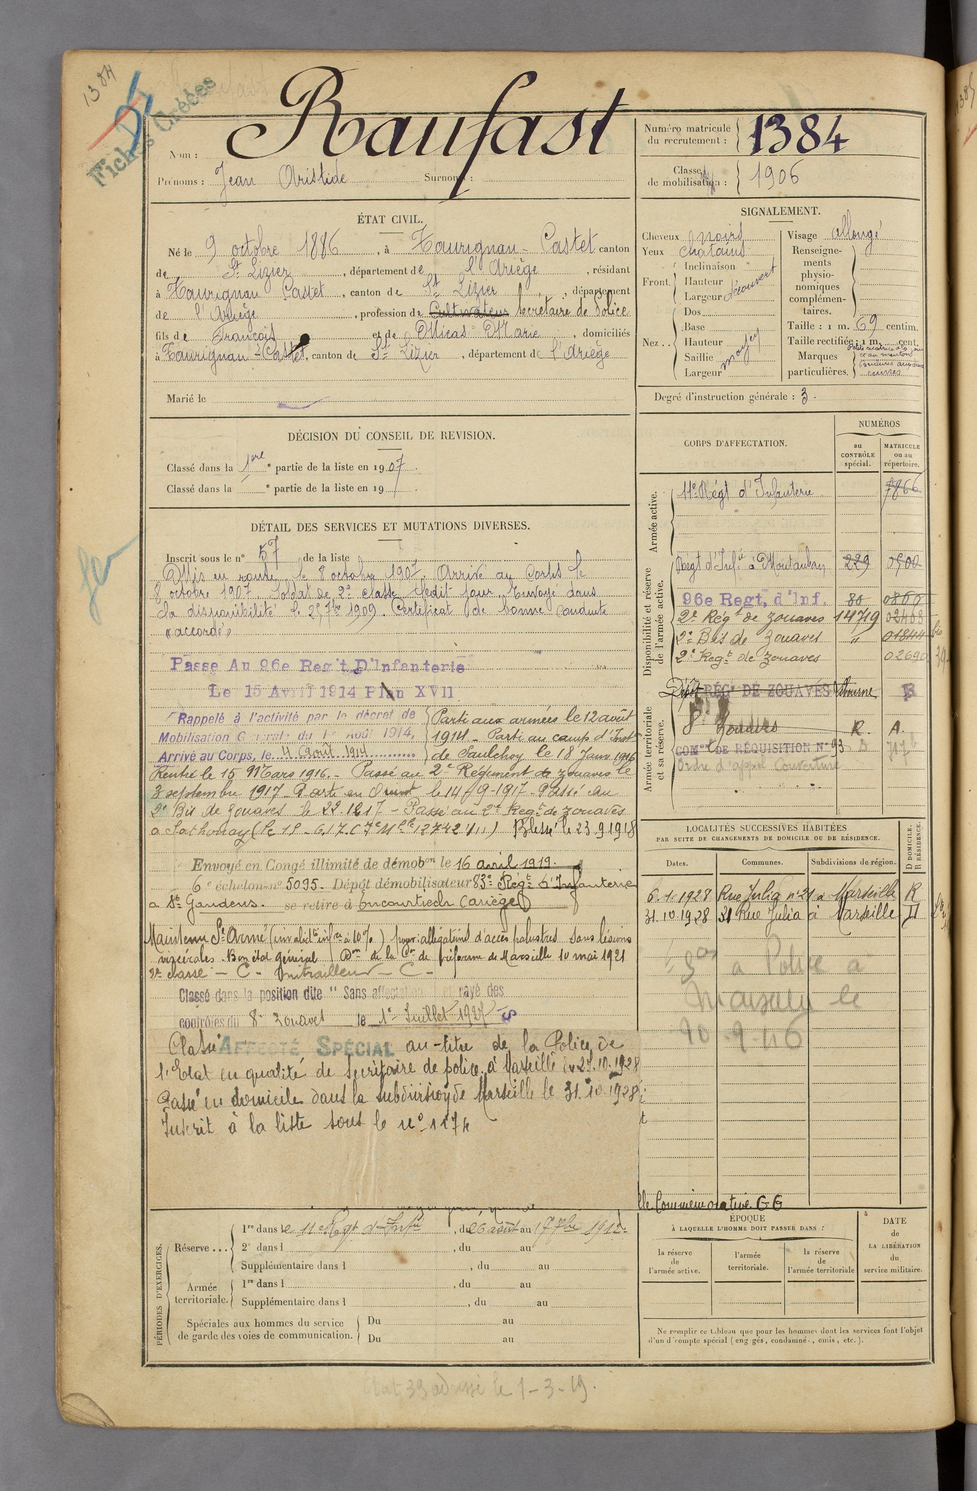 1384
Fiches Créées
Nom : Raufast
Prénoms : Jean Aristide Surnoms :
Numéro matricule du recrutement : 1384
Classe de mobilisation : 1906
ÉTAT CIVIL.
Né le 9 octobre 1886, à Taurignan-Castet canton
de St Lizier, département de l'Ariège, résidant
à Taurignan Castet, canton de St Lizier, département
de l'Ariège, profession de Cultivateur secrétaire de Police
fils de François et de Micas Marie, domiciliés
à Taurignan-Castet, canton de St Lizier, département de l'Ariège
Marié le
SIGNALEMENT.
Cheveux noirs
Yeux châtains
Front. Inclinaison
Hauteur
Largeur découvert
Nez .. Dos
Base
Hauteur
Saillie moyen
Largeur
Visage allongé
Renseignements physionomiques complémentaires.
Taille : 1 m. 69 centim.
Taille rectifiée : 1 m. cent.
Marques particulières.
Degré d'instruction générale : 3
DÉCISION DU CONSEIL DE REVISION.
Classé dans la 1ère partie de la liste en 1907.
Classé dans la e partie de la liste en 19
DÉTAIL DES SERVICES ET MUTATIONS DIVERSES.
Inscrit sous le n° 57 de la liste
Mis en route le 8 octobre 1907. Arrivé au Corps le
8 octobre 1907. Soldat de 2e classe ledit jour. Envoyé dans
la disponibilité le 25 7bre 1909. Certificat de bonne conduite
"accordé"
Passe Au 96e Reg't D'Infanterie
Le 15 Avril 1914 Plan XVII
Rappelé à l'activité par le décret de
Mobilisation Générale du 1er Août 1914,
Arrivé au Corps, le 4 Août 1914
Parti aux armées le 12 août
1914. Parti au camp d'Inst
de Saulchoy le 18 Janv 1916
Rentré le 15 Mars 1916. - Passé au 2e Régiment de zouaves le
3 septembre 1917. Parti en Orient le 14/9-1917. Passé au
2e Bis de Zouaves le 22.12.17 - Passé au 2e Regt de zouaves
à Sathonay Blessé le 23.9.1918
Envoyé en Congé illimité de démobon le 16 avril 1919.
6e échelon n° 5095. Dépôt démobilisateur 83e Regt d'Infanterie
à St Gaudens. se retire à Encourtiech (Ariège)
Maintenu St Armé (invalidité infre à 10%) pour allégations d'accès palustres sans lésions
viscérales. Bon état général Don de la Con de réforme de Marseille 10 mai 1921
2e classe - C - mitrailleur - C -
Classé dans la position dite "Sans affectation" et rayé des
contrôles du 8e Zouaves le 1er Juillet 1927
Classé AFFECTÉ SPÉCIAL au titre de la Police de
l'Etat en qualité de secrétaire de police à Marseille du 29.10.1928
Passé en domicile dans la subdivision de Marseille le 31.10.1928
Inscrit à la liste sous le n° 1174
CORPS D'AFFECTATION.
NUMÉROS
au CONTRÔLE spécial.
MATRICULE ou au répertoire.
Armée active.
11e Régt d'Infanterie 7866
Disponibilité et réserve de l'armée active.
Régt d'Infie à Montauban 229 0500
96e Regt, d'Inf. 80
2e Régt de zouaves 14719 02468
2e Bis de Zouaves " 01844
2e Regt de zouaves 02690
Armée territoriale et sa réserve.
Dépôt RÉGt DE ZOUAVES
8e Zouaves R. A.
COMon DE RÉQUISITION N° 93
Ordre d'appel Couverture
LOCALITÉS SUCCESSIVES HABITÉES
PAR SUITE DE CHANGEMENTS DE DOMICILE OU DE RÉSIDENCE.
Dates. Communes. Subdivisions de région. D DOMICILE. R RÉSIDENCE.
6.1.1928 Rue Julia n° 21 à Marseille R
31.10.1928 21 Rue Julia à Marseille D
à Police à
Marseille le
10.9.46
lle Commémorative GG
PÉRIODES D'EXERCICES.
Réserve ... 1re dans le 11e Regt d'Infie, du 26 août au 17 7bre 1912
2e dans l , du au
Supplémentaire dans l , du au
Armée territoriale. 1re dans l , du au
Supplémentaire dans l , du au
Spéciales aux hommes du service de garde des voies de communication. Du au
Du au
ÉPOQUE
À LAQUELLE L'HOMME DOIT PASSER DANS :
la réserve de l'armée active.
l'armée territoriale.
la réserve de l'armée territoriale
DATE de LA LIBÉRATION du service militaire.
Ne remplir ce tableau que pour les hommes dont les services font l'objet
d'un décompte spécial (engagés, condamnés, omis, etc.).
Etat 39 adressé le 1-3-19.